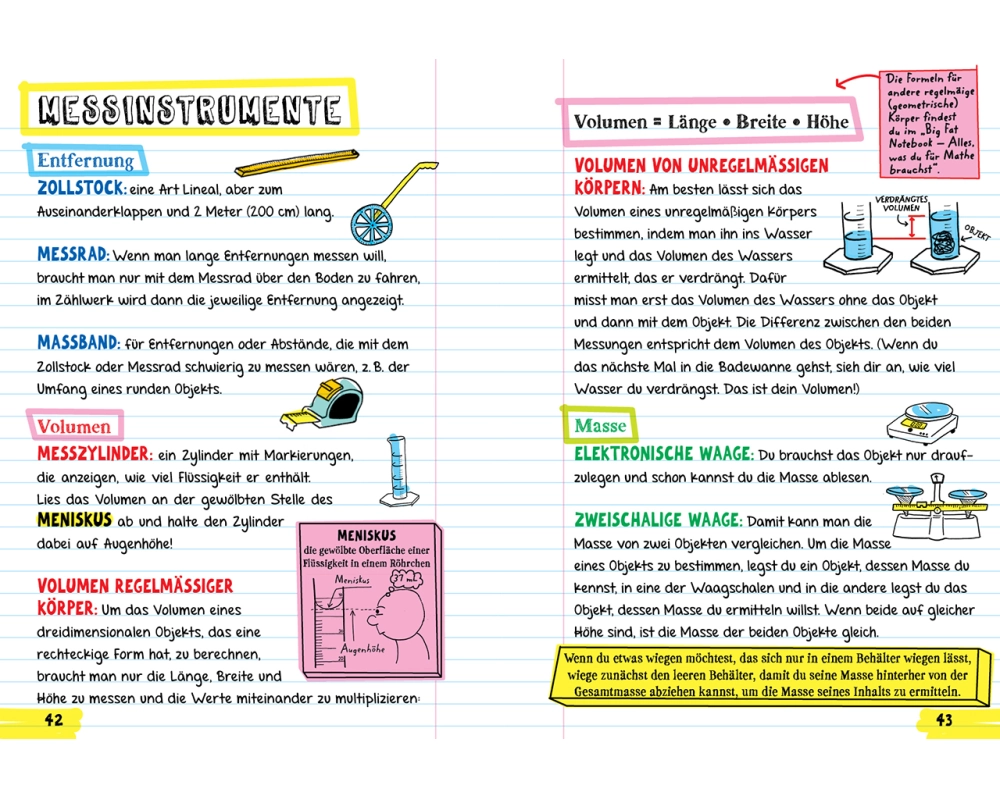 MESSINSTRUMENTE
Entfernung
ZOLLSTOCK: eine Art Lineal, aber zum
Auseinanderklappen und 2 Meter (200 cm) lang.
MESSRAD: Wenn man lange Entfernungen messen will,
braucht man nur mit dem Messrad über den Boden zu fahren,
im Zählwerk wird dann die jeweilige Entfernung angezeigt.
MASSBAND: für Entfernungen oder Abstände, die mit dem
Zollstock oder Messrad schwierig zu messen wären, z. B. der
Umfang eines runden Objekts.
Volumen
MESSZYLINDER: ein Zylinder mit Markierungen,
die anzeigen, wie viel Flüssigkeit er enthält.
Lies das Volumen an der gewölbten Stelle des
MENISKUS ab und halte den Zylinder
dabei auf Augenhöhe!
MENISKUS
die gewölbte Oberfläche einer
Flüssigkeit in einem Röhrchen
Meniskus
37 mL
Augenhöhe
VOLUMEN REGELMÄSSIGER
KÖRPER: Um das Volumen eines
dreidimensionalen Objekts, das eine
rechteckige Form hat, zu berechnen,
braucht man nur die Länge, Breite und
Höhe zu messen und die Werte miteinander zu multiplizieren:
42
Volumen = Länge • Breite • Höhe
Die Formeln für
andere regelmäige
(geometrische)
Körper findest
du im „Big Fat
Notebook – Alles,
was du für Mathe
brauchst“.
VOLUMEN VON UNREGELMÄSSIGEN
KÖRPERN: Am besten lässt sich das
Volumen eines unregelmäßigen Körpers
bestimmen, indem man ihn ins Wasser
legt und das Volumen des Wassers
ermittelt, das er verdrängt. Dafür
misst man erst das Volumen des Wassers ohne das Objekt
und dann mit dem Objekt. Die Differenz zwischen den beiden
Messungen entspricht dem Volumen des Objekts. (Wenn du
das nächste Mal in die Badewanne gehst, sieh dir an, wie viel
Wasser du verdrängst. Das ist dein Volumen!)
VERDRÄNGTES
VOLUMEN
OBJEKT
Masse
ELEKTRONISCHE WAAGE: Du brauchst das Objekt nur drauf-
zulegen und schon kannst du die Masse ablesen.
ZWEISCHALIGE WAAGE: Damit kann man die
Masse von zwei Objekten vergleichen. Um die Masse
eines Objekts zu bestimmen, legst du ein Objekt, dessen Masse du
kennst, in eine der Waagschalen und in die andere legst du das
Objekt, dessen Masse du ermitteln willst. Wenn beide auf gleicher
Höhe sind, ist die Masse der beiden Objekte gleich.
Wenn du etwas wiegen möchtest, das sich nur in einem Behälter wiegen lässt,
wiege zunächst den leeren Behälter, damit du seine Masse hinterher von der
Gesamtmasse abziehen kannst, um die Masse seines Inhalts zu ermitteln.
43